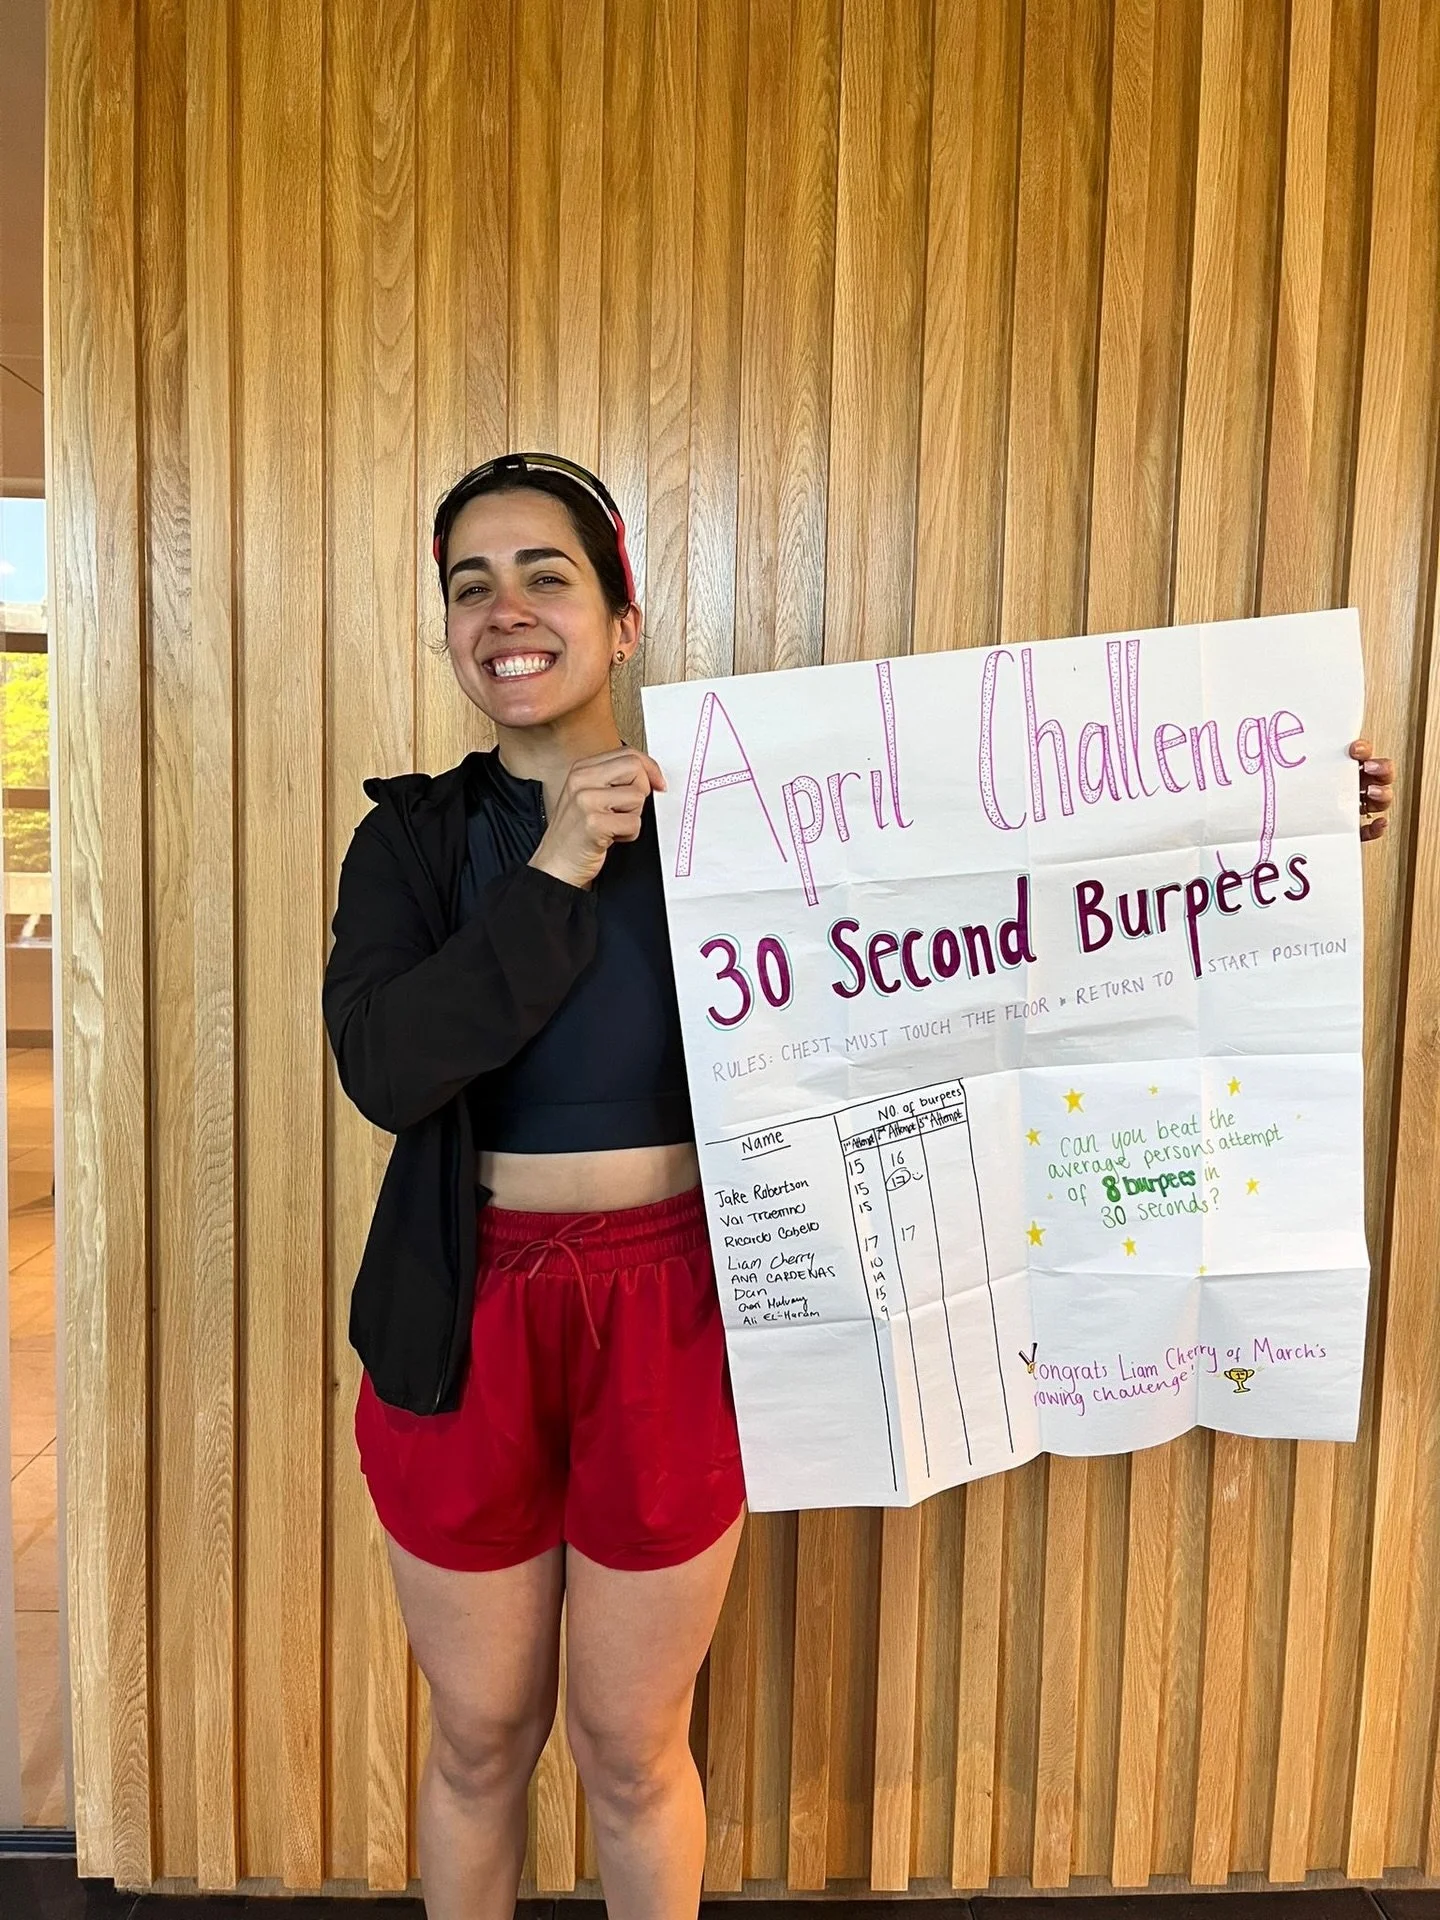 April Challenge
30 Second Burpees
RULES: CHEST MUST TOUCH THE FLOOR * RETURN TO START POSITION
Name
NO. of burpees
1st Attempt 2nd Attempt 3rd Attempt
Jake Robertson 15 16
Val 15 17
Ricardo Cabello 15
Liam Cherry 17 17
ANA CARDENAS 10
Dan 14
Mulvany 15
Ali El-Haram 9
Can you beat the
average persons attempt
of 8 burpees in
30 seconds?
Congrats Liam Cherry of March's
rowing challenge!